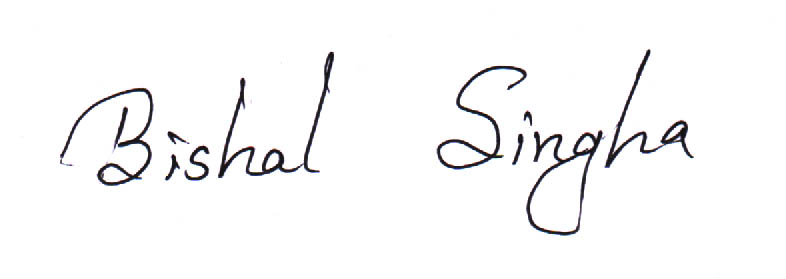 Bishal Singha